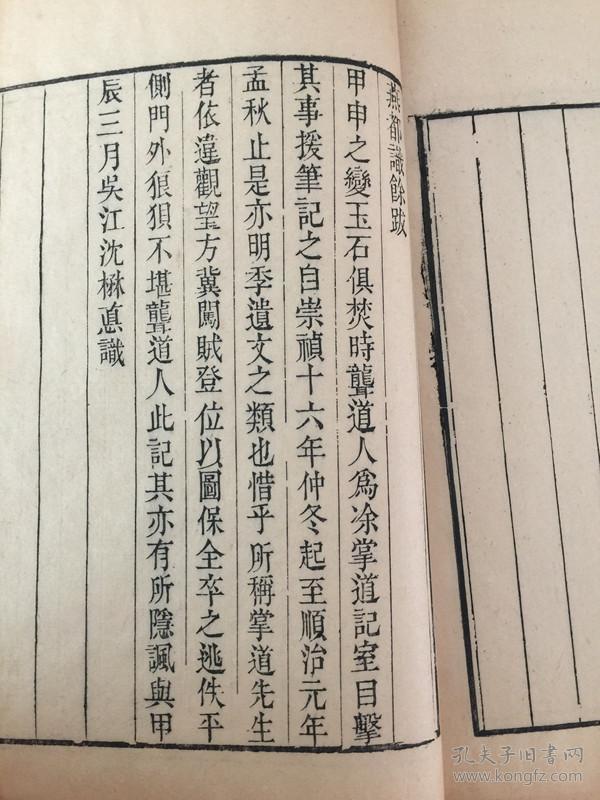 燕都識餘跋
甲申之變玉石俱焚時聾道人爲凃掌道記室目擊
其事援筆記之自崇禎十六年仲冬起至順治元年
孟秋止是亦明季遺文之類也惜乎所稱掌道先生
者依違觀望方冀闖賊登位以圖保全卒之逃佚平
側門外狼狽不堪聾道人此記其亦有所隱諷與甲
辰三月吳江沈楙惪識
孔夫子旧书网
www.kongfz.com